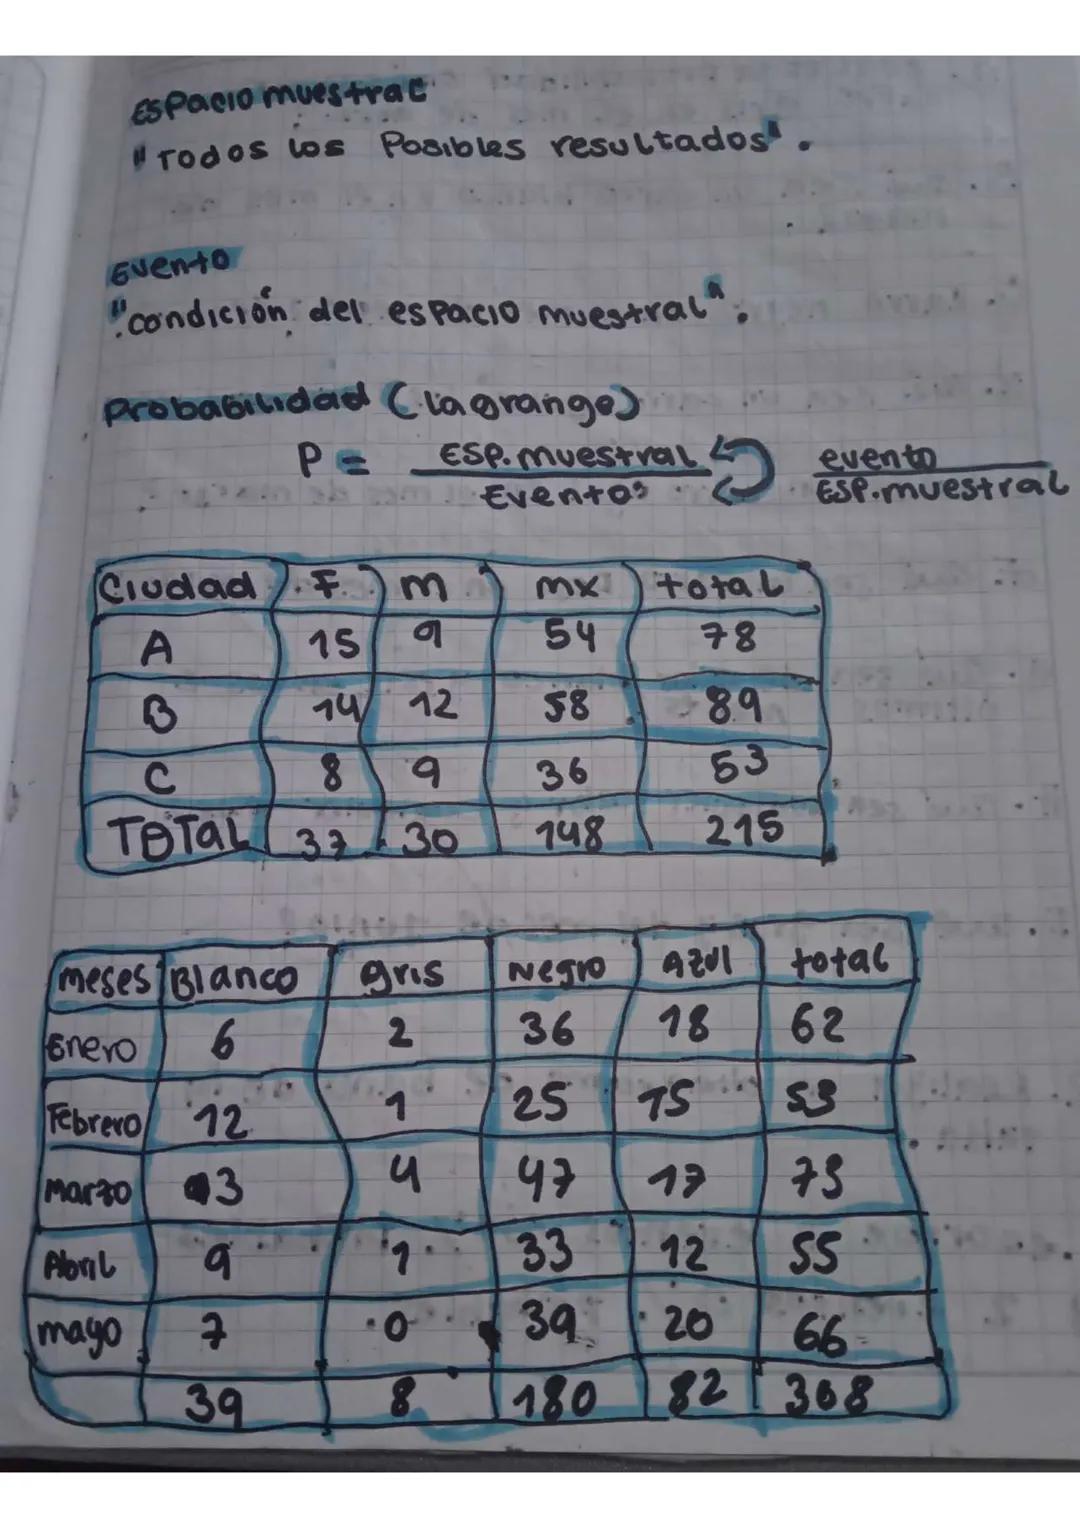 Espacio muestral
"Todos los Posibles resultados".
Evento
"condición del espacio muestral".
Probabilidad (lagrange)
P = ESP. muestral / Eventos evento / ESP. muestral
Ciudad F M mx total
A 15 9 54 78
B 14 12 58 89
C 8 9 36 53
TOTAL 37 30 148 215
meses Blanco gris Negro Azul total
Enero 6 2 36 18 62
Febrero 12 1 25 15 53
Marzo 3 4 47 17 73
Abril 9 1 33 12 55
mayo 7 0 39 20 66
39 8 180 82 308